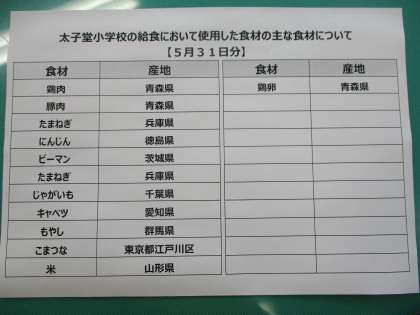 太子堂小学校の給食において使用した食材の主な食材について
【５月３１日分】
食材 産地 食材 産地
鶏肉 青森県 鶏卵 青森県
豚肉 青森県
たまねぎ 兵庫県
にんじん 徳島県
ピーマン 茨城県
たまねぎ 兵庫県
じゃがいも 千葉県
キャベツ 愛知県
もやし 群馬県
こまつな 東京都江戸川区
米 山形県